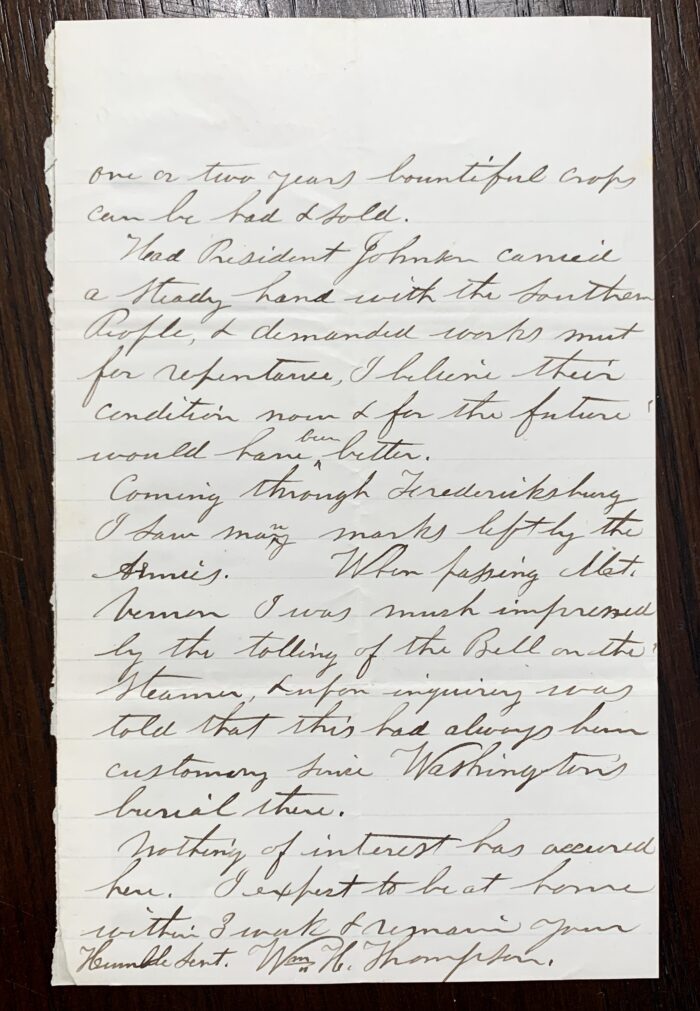 one or two years bountiful crops
can be had & sold.
Had President Johnson carried
a steady hand with the Southern
People, & demanded works meet
for repentance, I believe their
condition now & for the future
would have been better.
Coming through Fredericksburg
I saw many marks left by the
Armies. When passing Mt.
Vernon I was much impressed
by the tolling of the Bell on the
Steamer, & upon inquiry was
told that this had always been
customary since Washington's
burial there.
Nothing of interest has occured
here. I expect to be at home
within 3 week & remain your
Humble Servt. Wm H. Thompson.